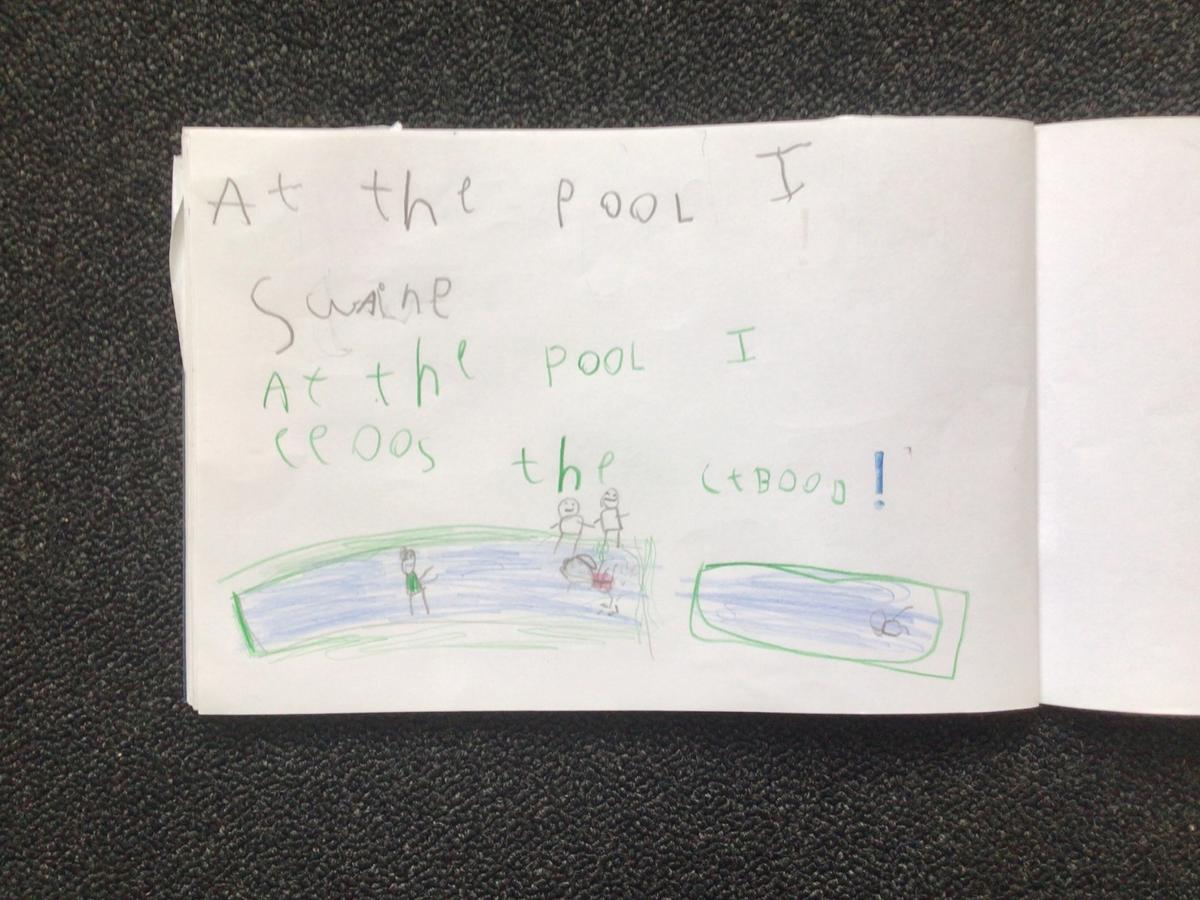 At the pool I
Swaine
At the pool I
ceoos the ctBood!